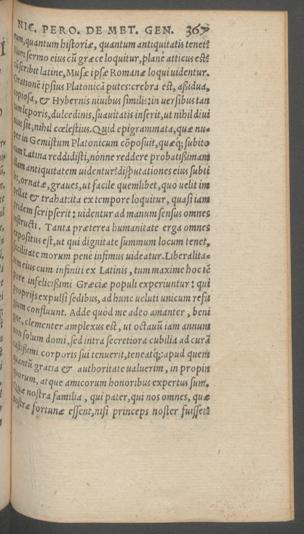 NIC. PERO. DE MET. GEN. 367
rum, quantum historiæ, quantum antiquitatis tenet?
sermo eius cū græce loquitur, plane atticus est?
scribit latine, Musæ ipsæ Romanæ loqui uidentur.
Orationē ipsius Platonicā putes: crebra est, aßidua,
copiosa, & Hybernis niuibus similis: in uersibus tan
leporis, dulcedinis, suauitatis inserit, ut nihil diui
sit, nihil cœlestius. Quid epigrammata, quæ nu
in Gemistum Platonicum cōposuit, quæq; subito
Latina reddidisti, nonne reddere probatißimam
antiquitatem uidentur? disputationes eius subti
ornatæ, graues, ut facile quemlibet, quo uelit im
pellat & trahat: ita ex tempore loquitur, quasi iam
pridem scripserit: uidentur ad manum sensus omnes
instructi. Tanta præterea humanitate erga omnes
expositus est, ut qui dignitate summum locum tenet,
facilitate morum pene infimus uideatur. Liberalita-
tem eius cum infiniti ex Latinis, tum maxime hoc tē
pore infelicißimi Græciæ populi experiuntur: qui
proprijs expulsi sedibus, ad hunc ueluti unicum refu
gium confluunt. Adde quòd me adeo amanter, beni
gne, clementer amplexus est, ut octauū iam annum
non solum domi, sed intra secretiora cubilia ad curā
sui corporis sui tenuerit, teneatq;: apud quem
quantū gratia & authoritate ualuerim, in propin
quorum, atque amicorum honoribus expertus sum.
Quæ nostra familia, qui pater, qui nos omnes, quæ
nostræ fortunæ essent, nisi princeps noster fuisset?